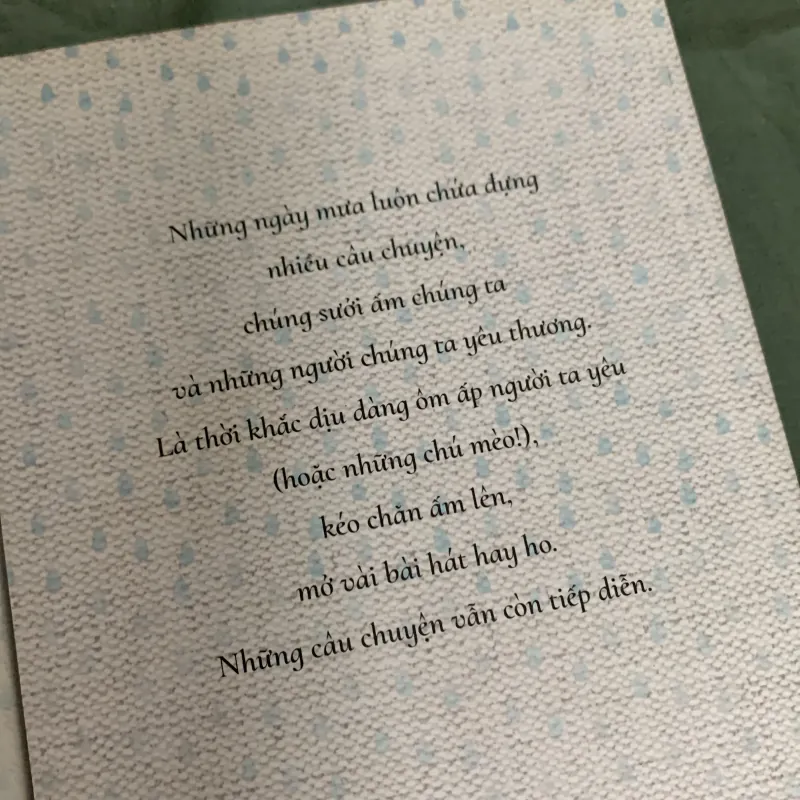 Những ngày mưa luôn chứa đựng
nhiều câu chuyện,
chúng sưởi ấm chúng ta
và những người chúng ta yêu thương.
Là thời khắc dịu dàng ôm ấp người ta yêu
(hoặc những chú mèo!),
kéo chăn ấm lên,
mở vài bài hát hay ho.
Những câu chuyện vẫn còn tiếp diễn.